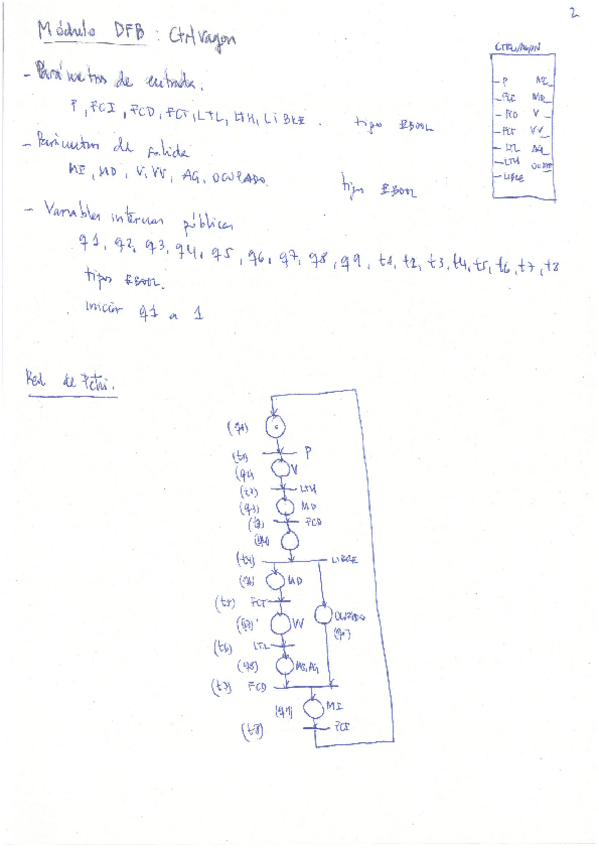 2
Módulo DFB : Ctrlvagon
CTRLVAGON
P MI
FCI MD
FCD V
FCT VV
LTL AG
LTH OCUPADO
LIBRE
- Parámetros de entrada.
P, FCI, FCD, FCT, LTL, LTH, LIBRE. tipo EBOOL
- Parámetros de salida
MI, MD, V, VV, AG, OCUPADO. tipo EBOOL
- Variables internas públicas
q1, q2, q3, q4, q5, q6, q7, q8, q9, t1, t2, t3, t4, t5, t6, t7, t8
tipo EBOOL.
iniciar q1 a 1
Red de Petri.
(q1)
(t1) P
(q2) V
(t2) LTH
(q3) MD
(t3) FCD
(q4)
(t4) LIBRE
MD
(t5) FCT
VV
OCUPADO
(t6) LTL
(q8)
(t7) FCD
MI
(t8) FCI